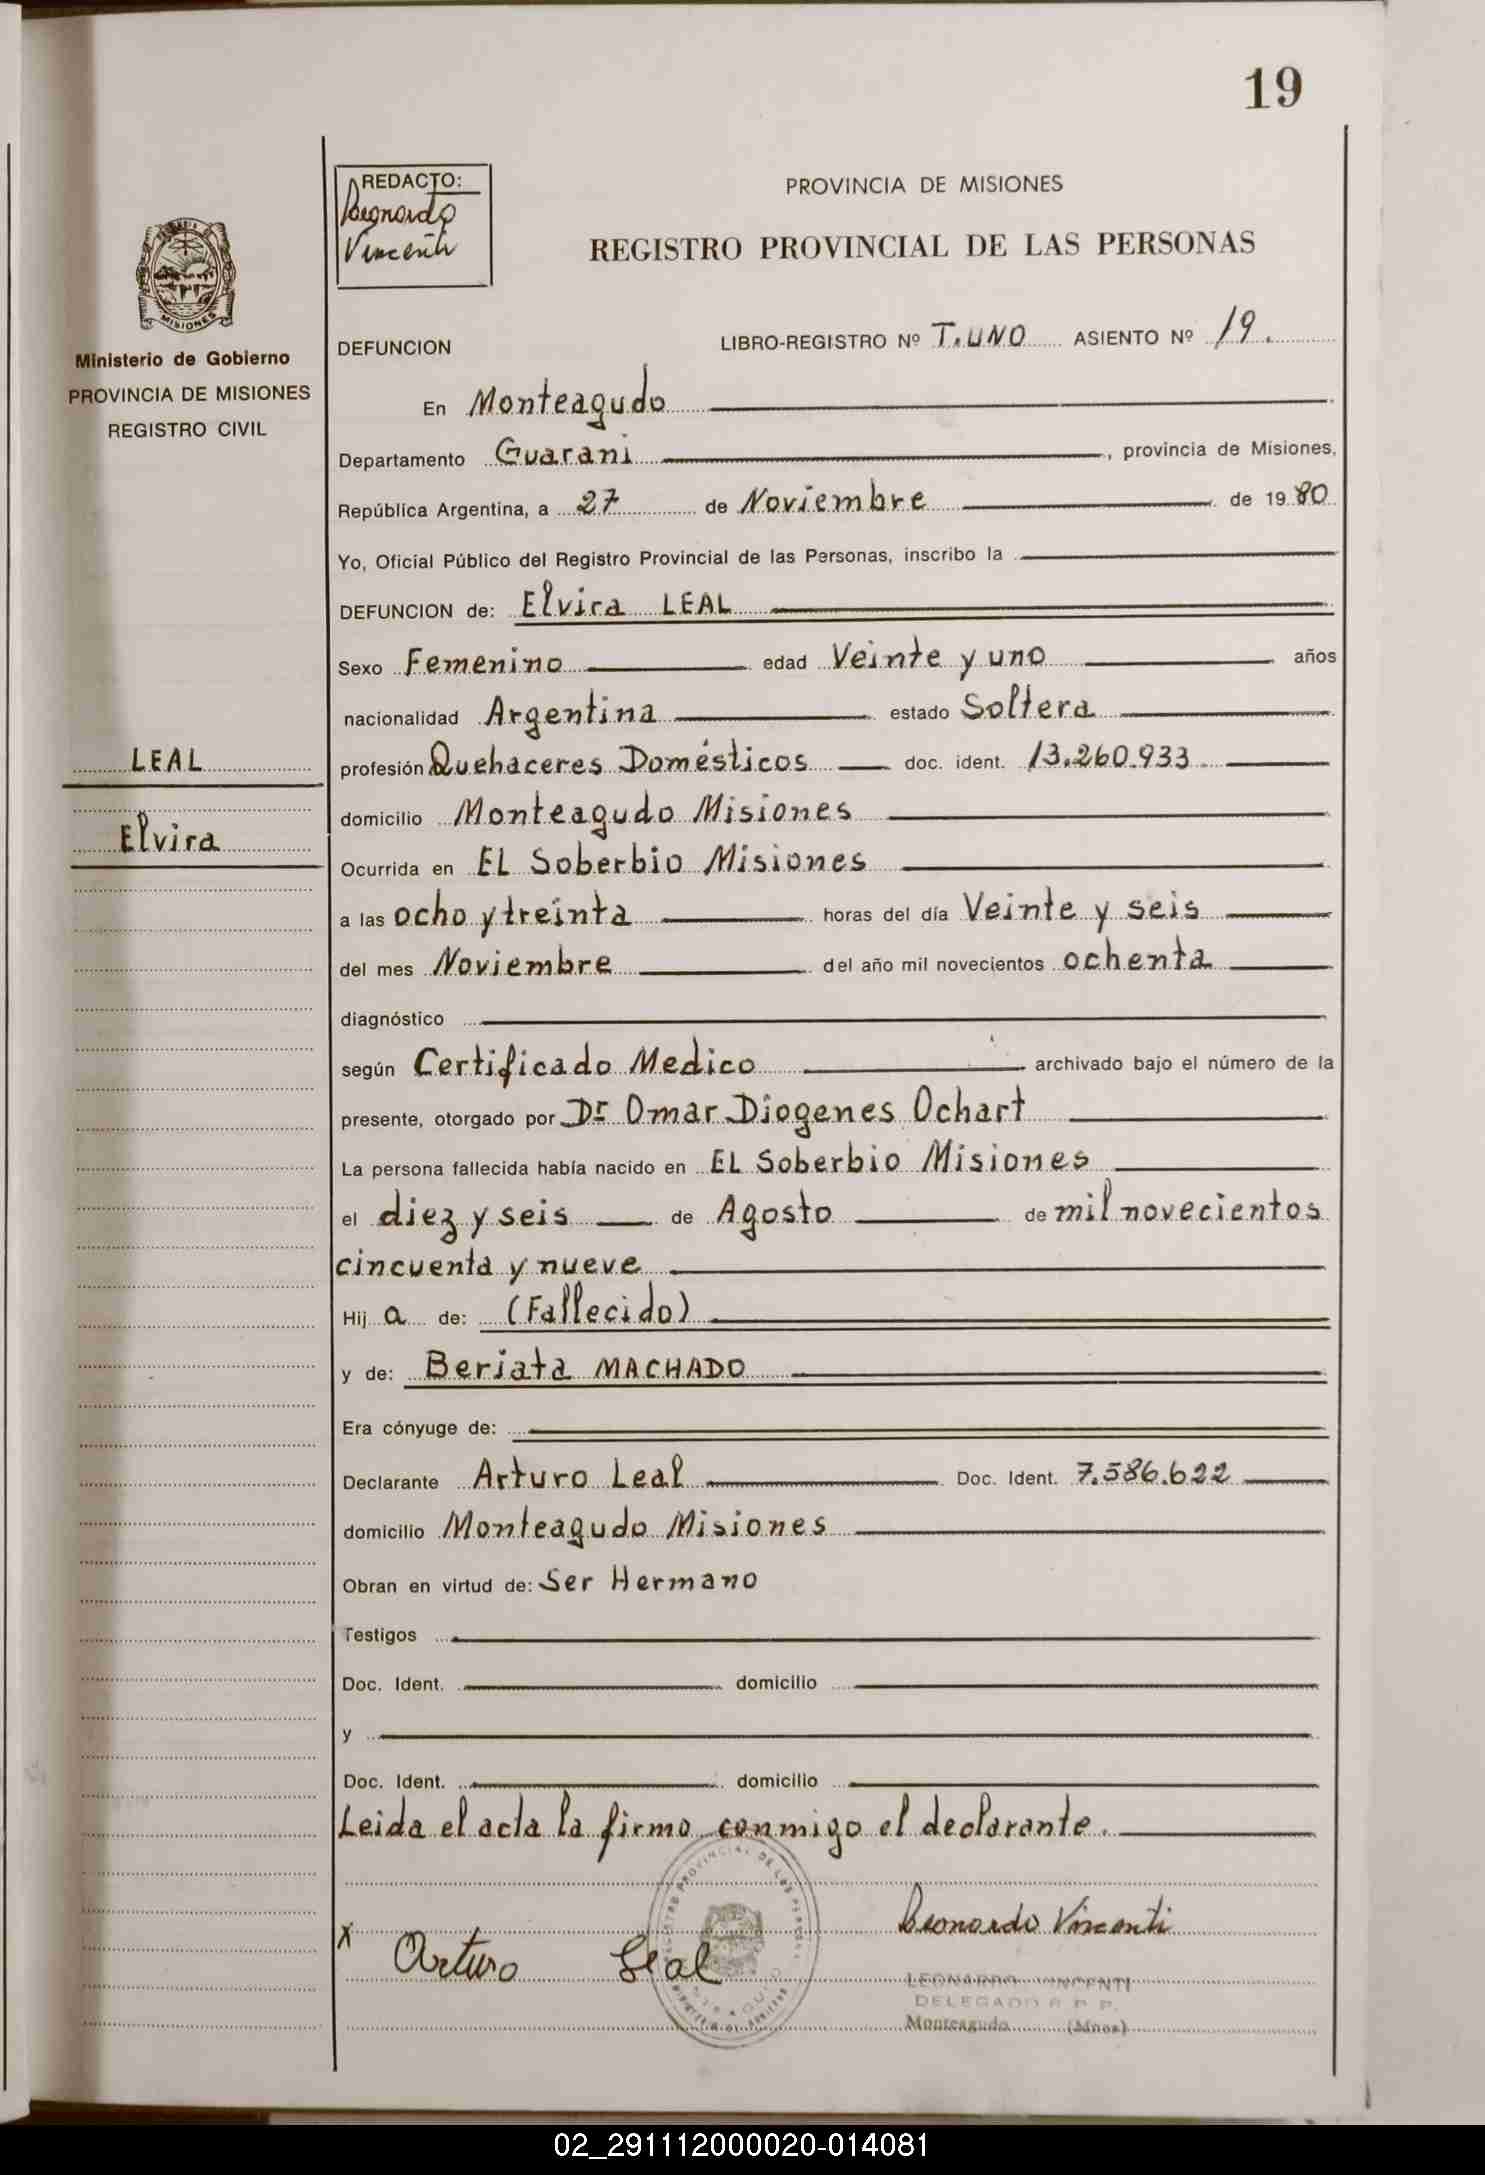 19
REDACTO:
Leonardo
Vincenti
PROVINCIA DE MISIONES
REGISTRO PROVINCIAL DE LAS PERSONAS
MISIONES
Ministerio de Gobierno
PROVINCIA DE MISIONES
REGISTRO CIVIL
LEAL
Elvira
DEFUNCION LIBRO-REGISTRO Nº T. UNO ASIENTO Nº 19.
En Monteagudo
Departamento Guarani, provincia de Misiones,
República Argentina, a 27 de Noviembre de 1980
Yo, Oficial Público del Registro Provincial de las Personas, inscribo la
DEFUNCION de: Elvira LEAL
Sexo Femenino edad Veinte y uno años
nacionalidad Argentina estado Soltera
profesión Quehaceres Domésticos doc. ident. 13.260.933
domicilio Monteagudo Misiones
Ocurrida en EL Soberbio Misiones
a las ocho y treinta horas del día Veinte y seis
del mes Noviembre del año mil novecientos ochenta
diagnóstico
según Certificado Medico archivado bajo el número de la
presente, otorgado por Dr Omar Diogenes Ochart
La persona fallecida había nacido en EL Soberbio Misiones
el diez y seis de Agosto de mil novecientos
cincuenta y nueve
Hij a de: (Fallecido)
y de: Beriata MACHADO
Era cónyuge de:
Declarante Arturo Leal Doc. Ident. 7.586.622
domicilio Monteagudo Misiones
Obran en virtud de: Ser Hermano
Testigos
Doc. Ident. domicilio
y
Doc. Ident. domicilio
Leida el acta la firmo conmigo el declarante.
Leonardo Vincenti
X Arturo Leal
LEONARDO VINCENTI
DELEGADO R. P. P.
Monteagudo (Mnes)
02_291112000020-014081